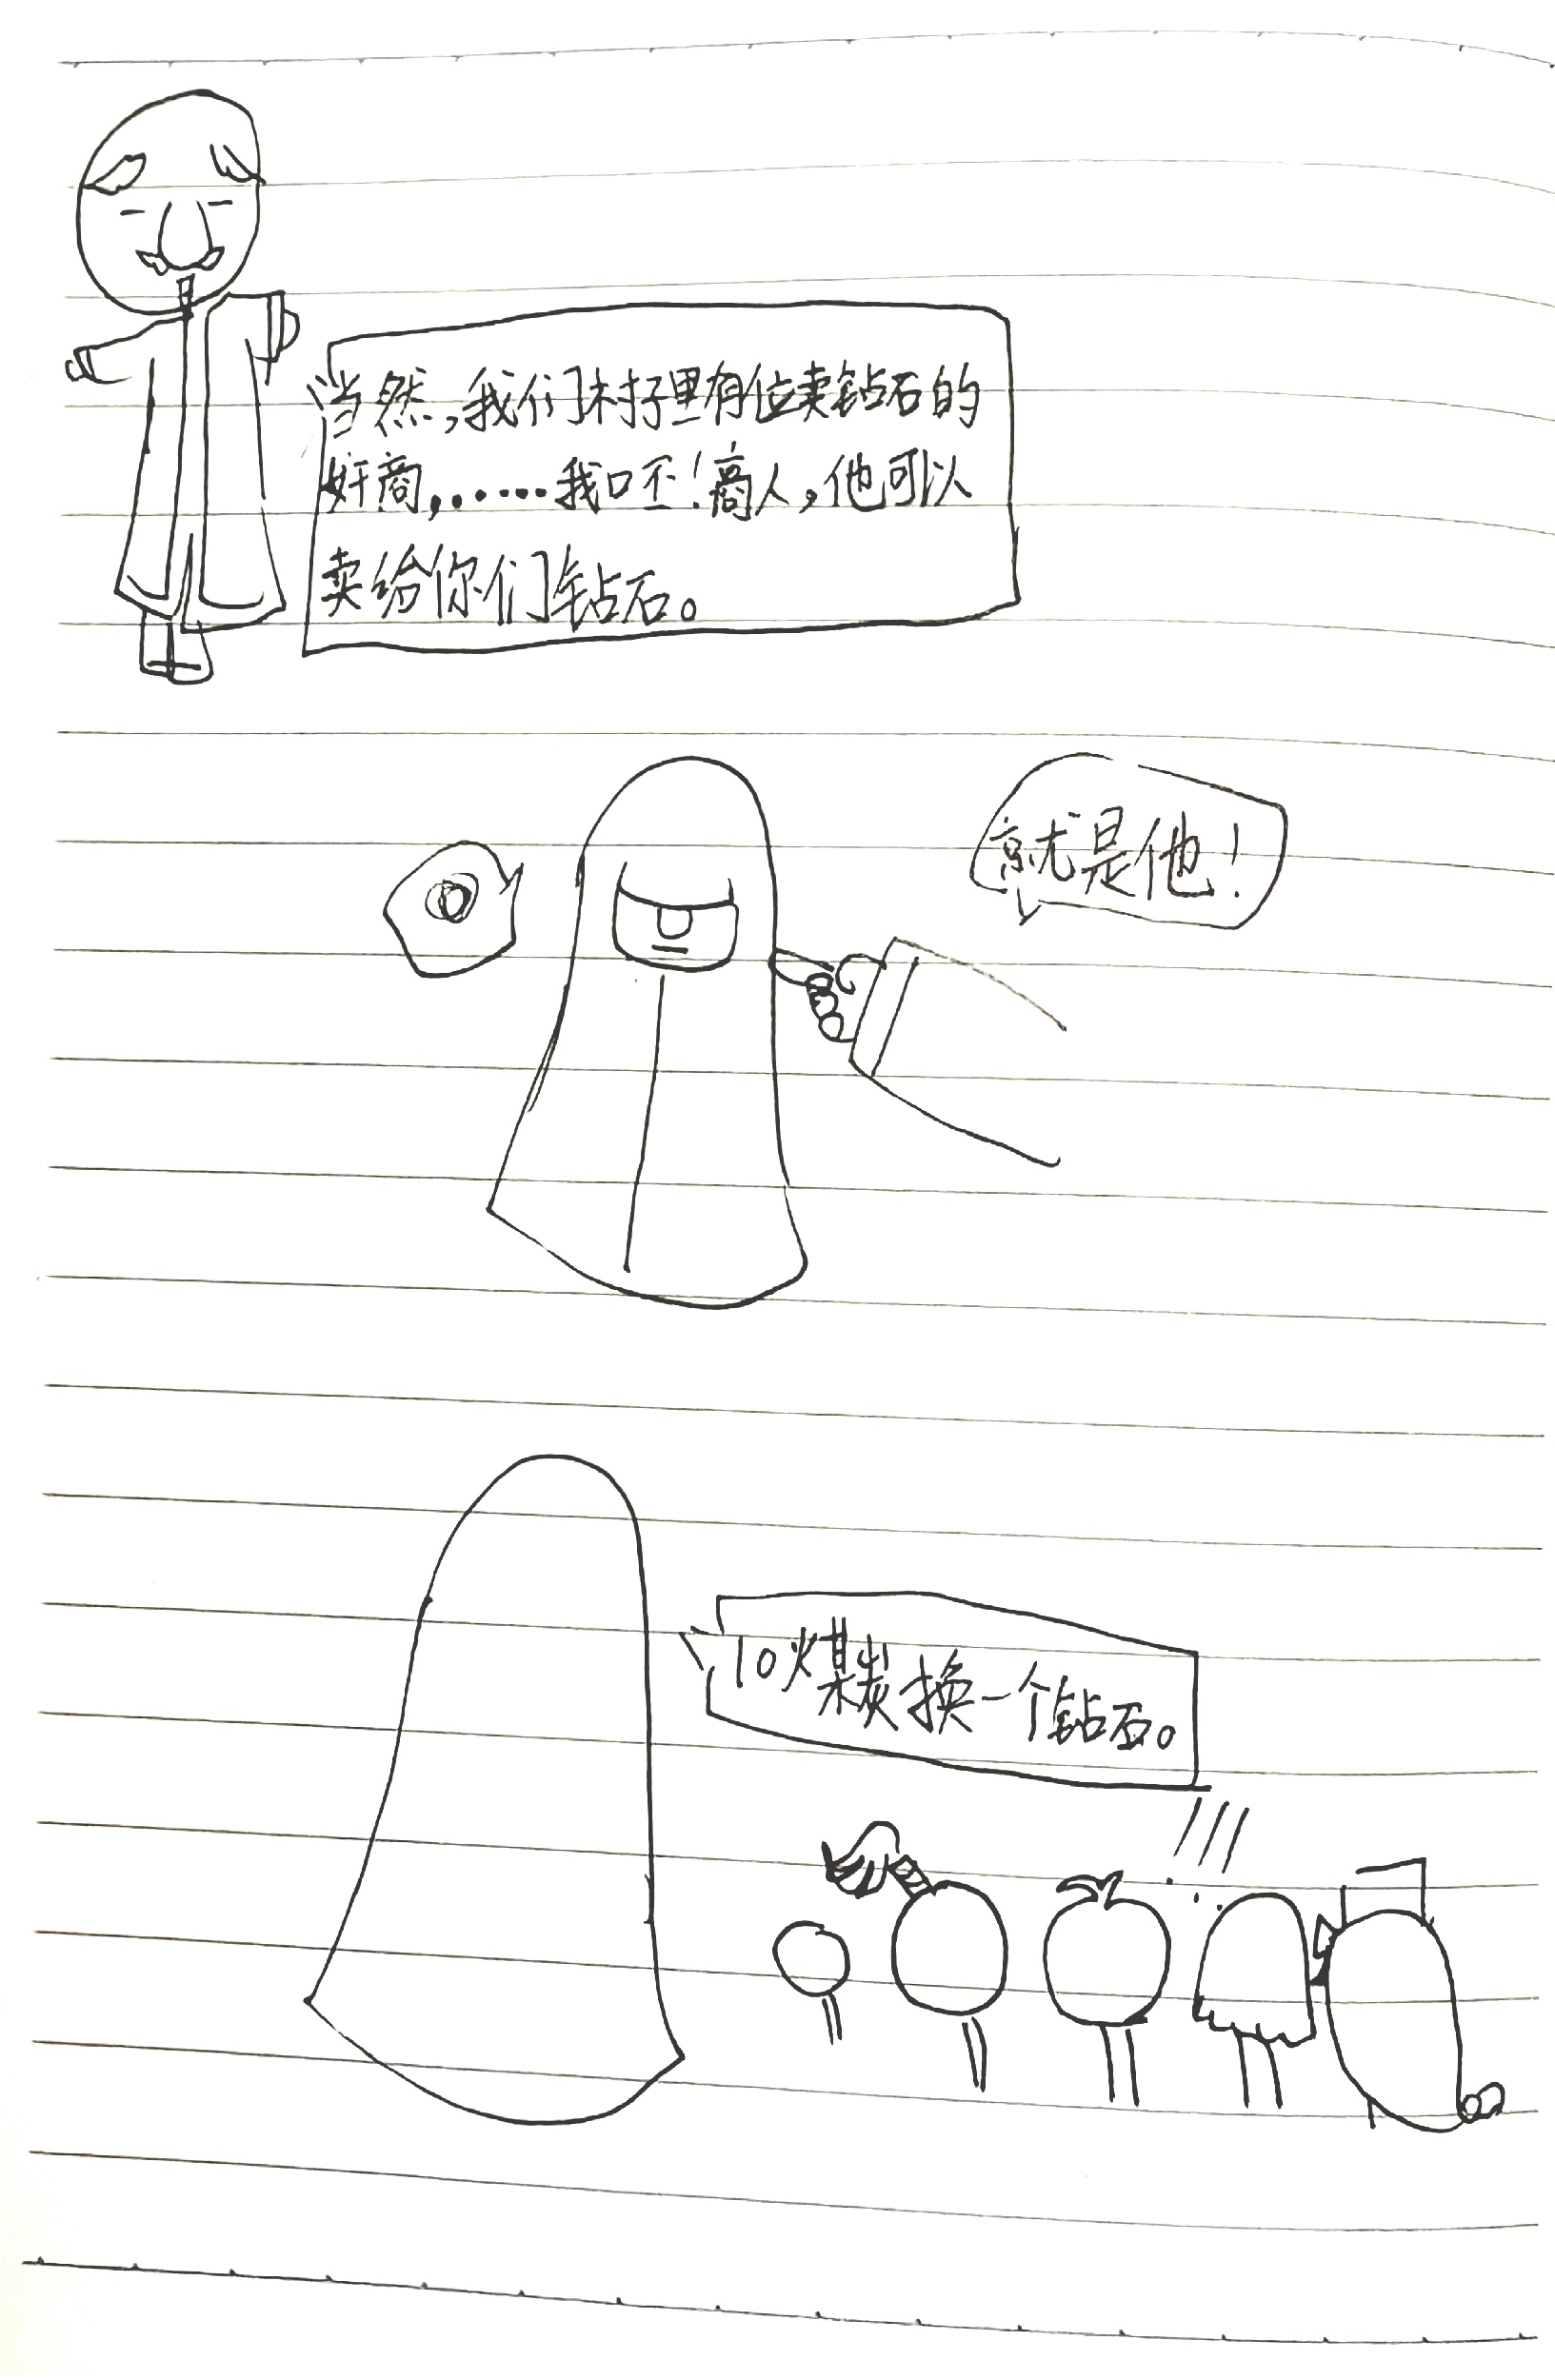 当然,我们村子里有位卖钻石的
奸商,……我呸!商人,他可以
卖给你们钻石。
就是他!
10煤炭换一个钻石。